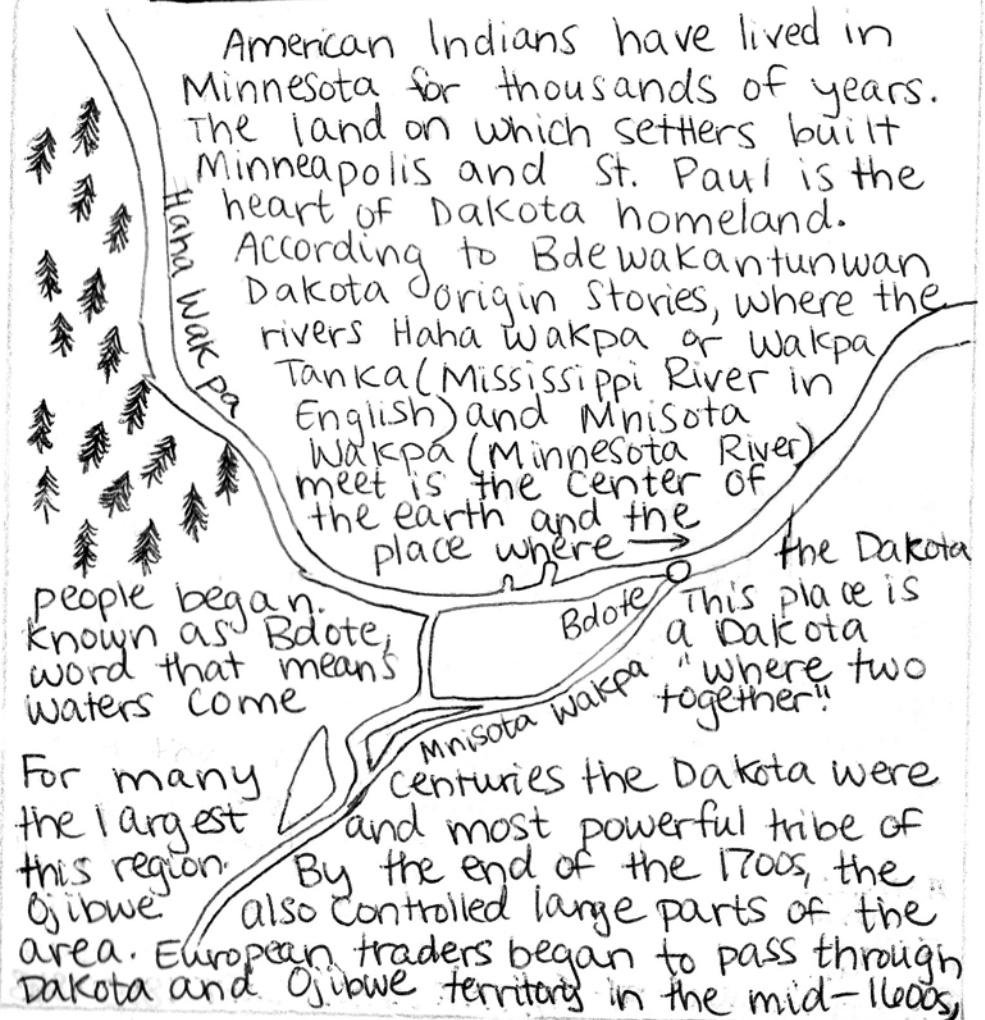 American Indians have lived in
Minnesota for thousands of years.
The land on which settlers built
Minneapolis and St. Paul is the
heart of Dakota homeland.
According to Bdewakantunwan
Dakota origin stories, where the
rivers Haha Wakpa or Wakpa
Tanka (Mississippi River in
English) and Mnisota
Wakpa (Minnesota River)
meet is the center of
the earth and the
place where → the Dakota
people began. This place is
known as Bdote, a Dakota
word that means "where two
waters come together".
Haha Wakpa
Bdote
Mnisota Wakpa
For many centuries the Dakota were
the largest and most powerful tribe of
this region. By the end of the 1700s, the
Ojibwe also controlled large parts of the
area. European traders began to pass through
Dakota and Ojibwe territory in the mid-1600s,